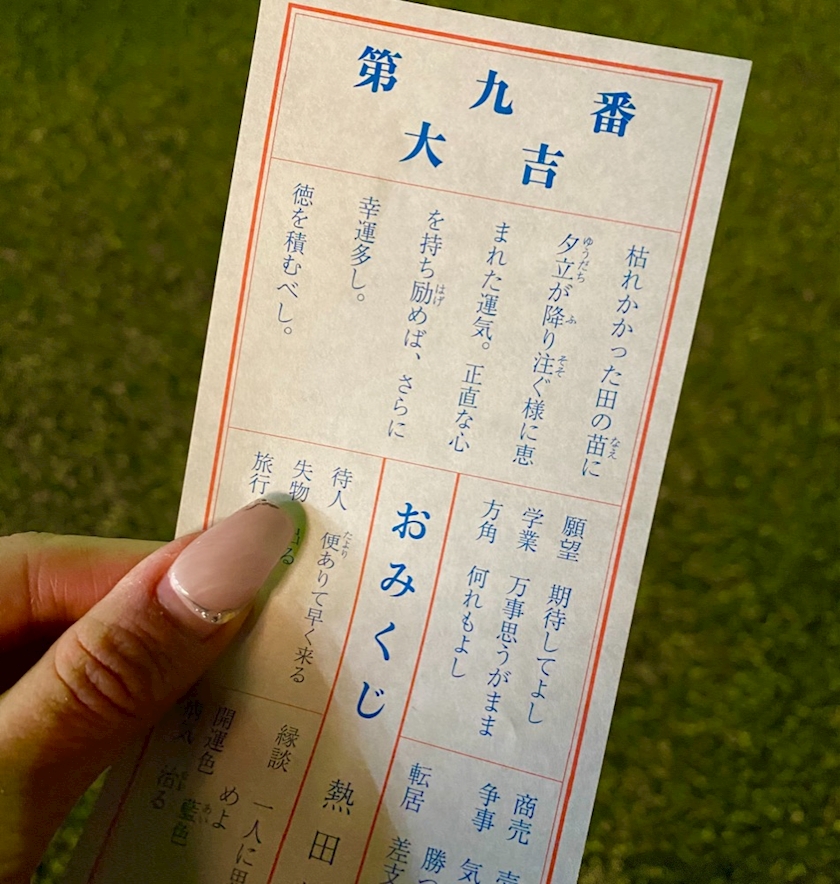 第九番
大吉
枯れかかった田の苗に
夕立が降り注ぐ様に恵
まれた運気。正直な心
を持ち励めば、さらに
幸運多し。
徳を積むべし。
願望 期待してよし
学業 万事思うがまま
方角 何れもよし
商売
争事
転居
おみくじ
熱田
待人 便ありて早く来る
失物
旅行
縁談 一人に
めよ
開運色 藍色
病気 治る